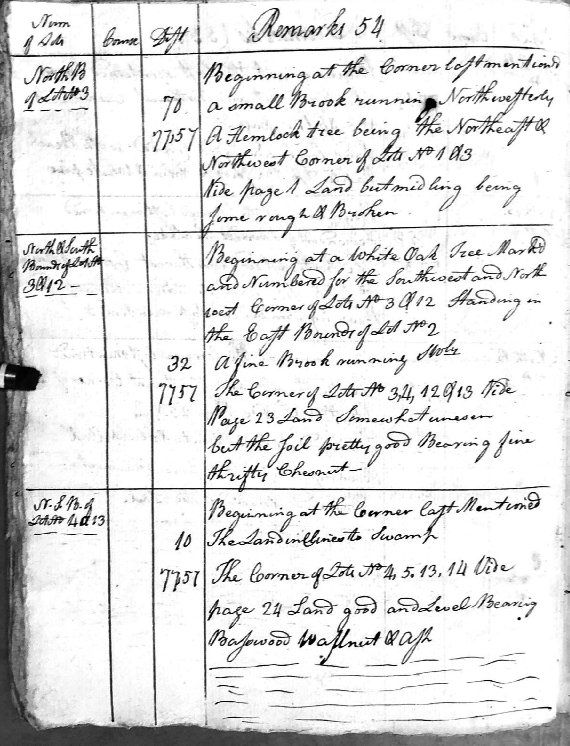 Num of Lots Course Dist Remarks 54
North B of Lot No 3
Beginning at the Corner last mentiond
70 a small Brook running Northwesterly
7757 A Hemlock tree being the Northeast &
Northwest Corner of Lots No 1 & 3
Vide page 1 Land but midling being
some rough & Broken
North & South Bounds of Lot No 3 & 12 –
Beginning at a White Oak Tree Markd
and Numbered for the Southwest and North
west Corner of Lots No 3 & 12 Standing in
the East Bounds of Lot No 2
32 A fine Brook running
7757 The Corner of Lots No 3, 4, 12 & 13 Vide
Page 23 Land Somewhat uneven
but the soil pretty good Bearing fine
thrifty Chesnut –
N. & B. of Lot No 4 & 13
Beginning at the Corner last Mentioned
10 The Land inclines to Swamp
7757 The Corner of Lots No 4, 5, 13, 14 Vide
page 24 Land good and Level Bearing
Basswood Wallnut & Ash